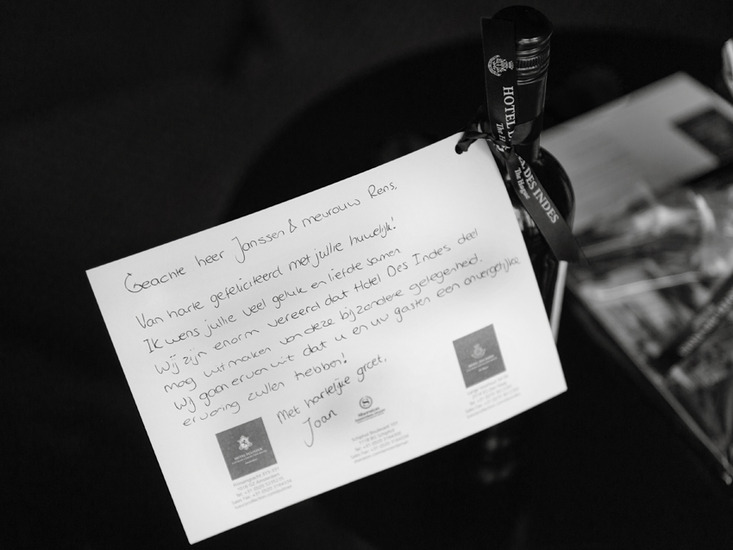 HOTEL DES INDES
The Hague
Geachte heer Janssen & mevrouw Rens,
Van harte gefeliciteerd met jullie huwelijk!
Ik wens jullie veel geluk en liefde samen.
Wij zijn enorm vereerd dat Hotel Des Indes deel
mag uitmaken van deze bijzondere gelegenheid.
Wij gaan ervan uit dat u en uw gasten een onvergetelijke
ervaring zullen hebben!
Met hartelijke groet,
Joan